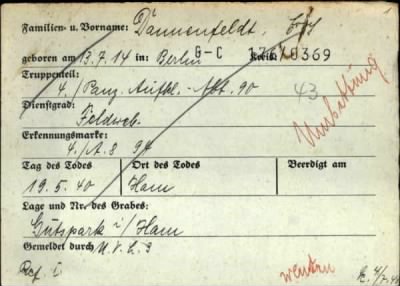 Familien- u. Vorname: Dannenfeldt,
geboren am 13.7.14 in: Berlin Kreis:
G-C 17670369
Truppenteil:
4./Panz. Aufkl.-Abt. 90
43
Umbettung
Dienstgrad:
Feldweb.
Erkennungsmarke:
4./A.8 94
Tag des Todes Ort des Todes Beerdigt am
19.5.40 Ham
Lage und Nr. des Grabes:
Gutspark i/Ham
Gemeldet durch
Ref. I
wenden
4/7.